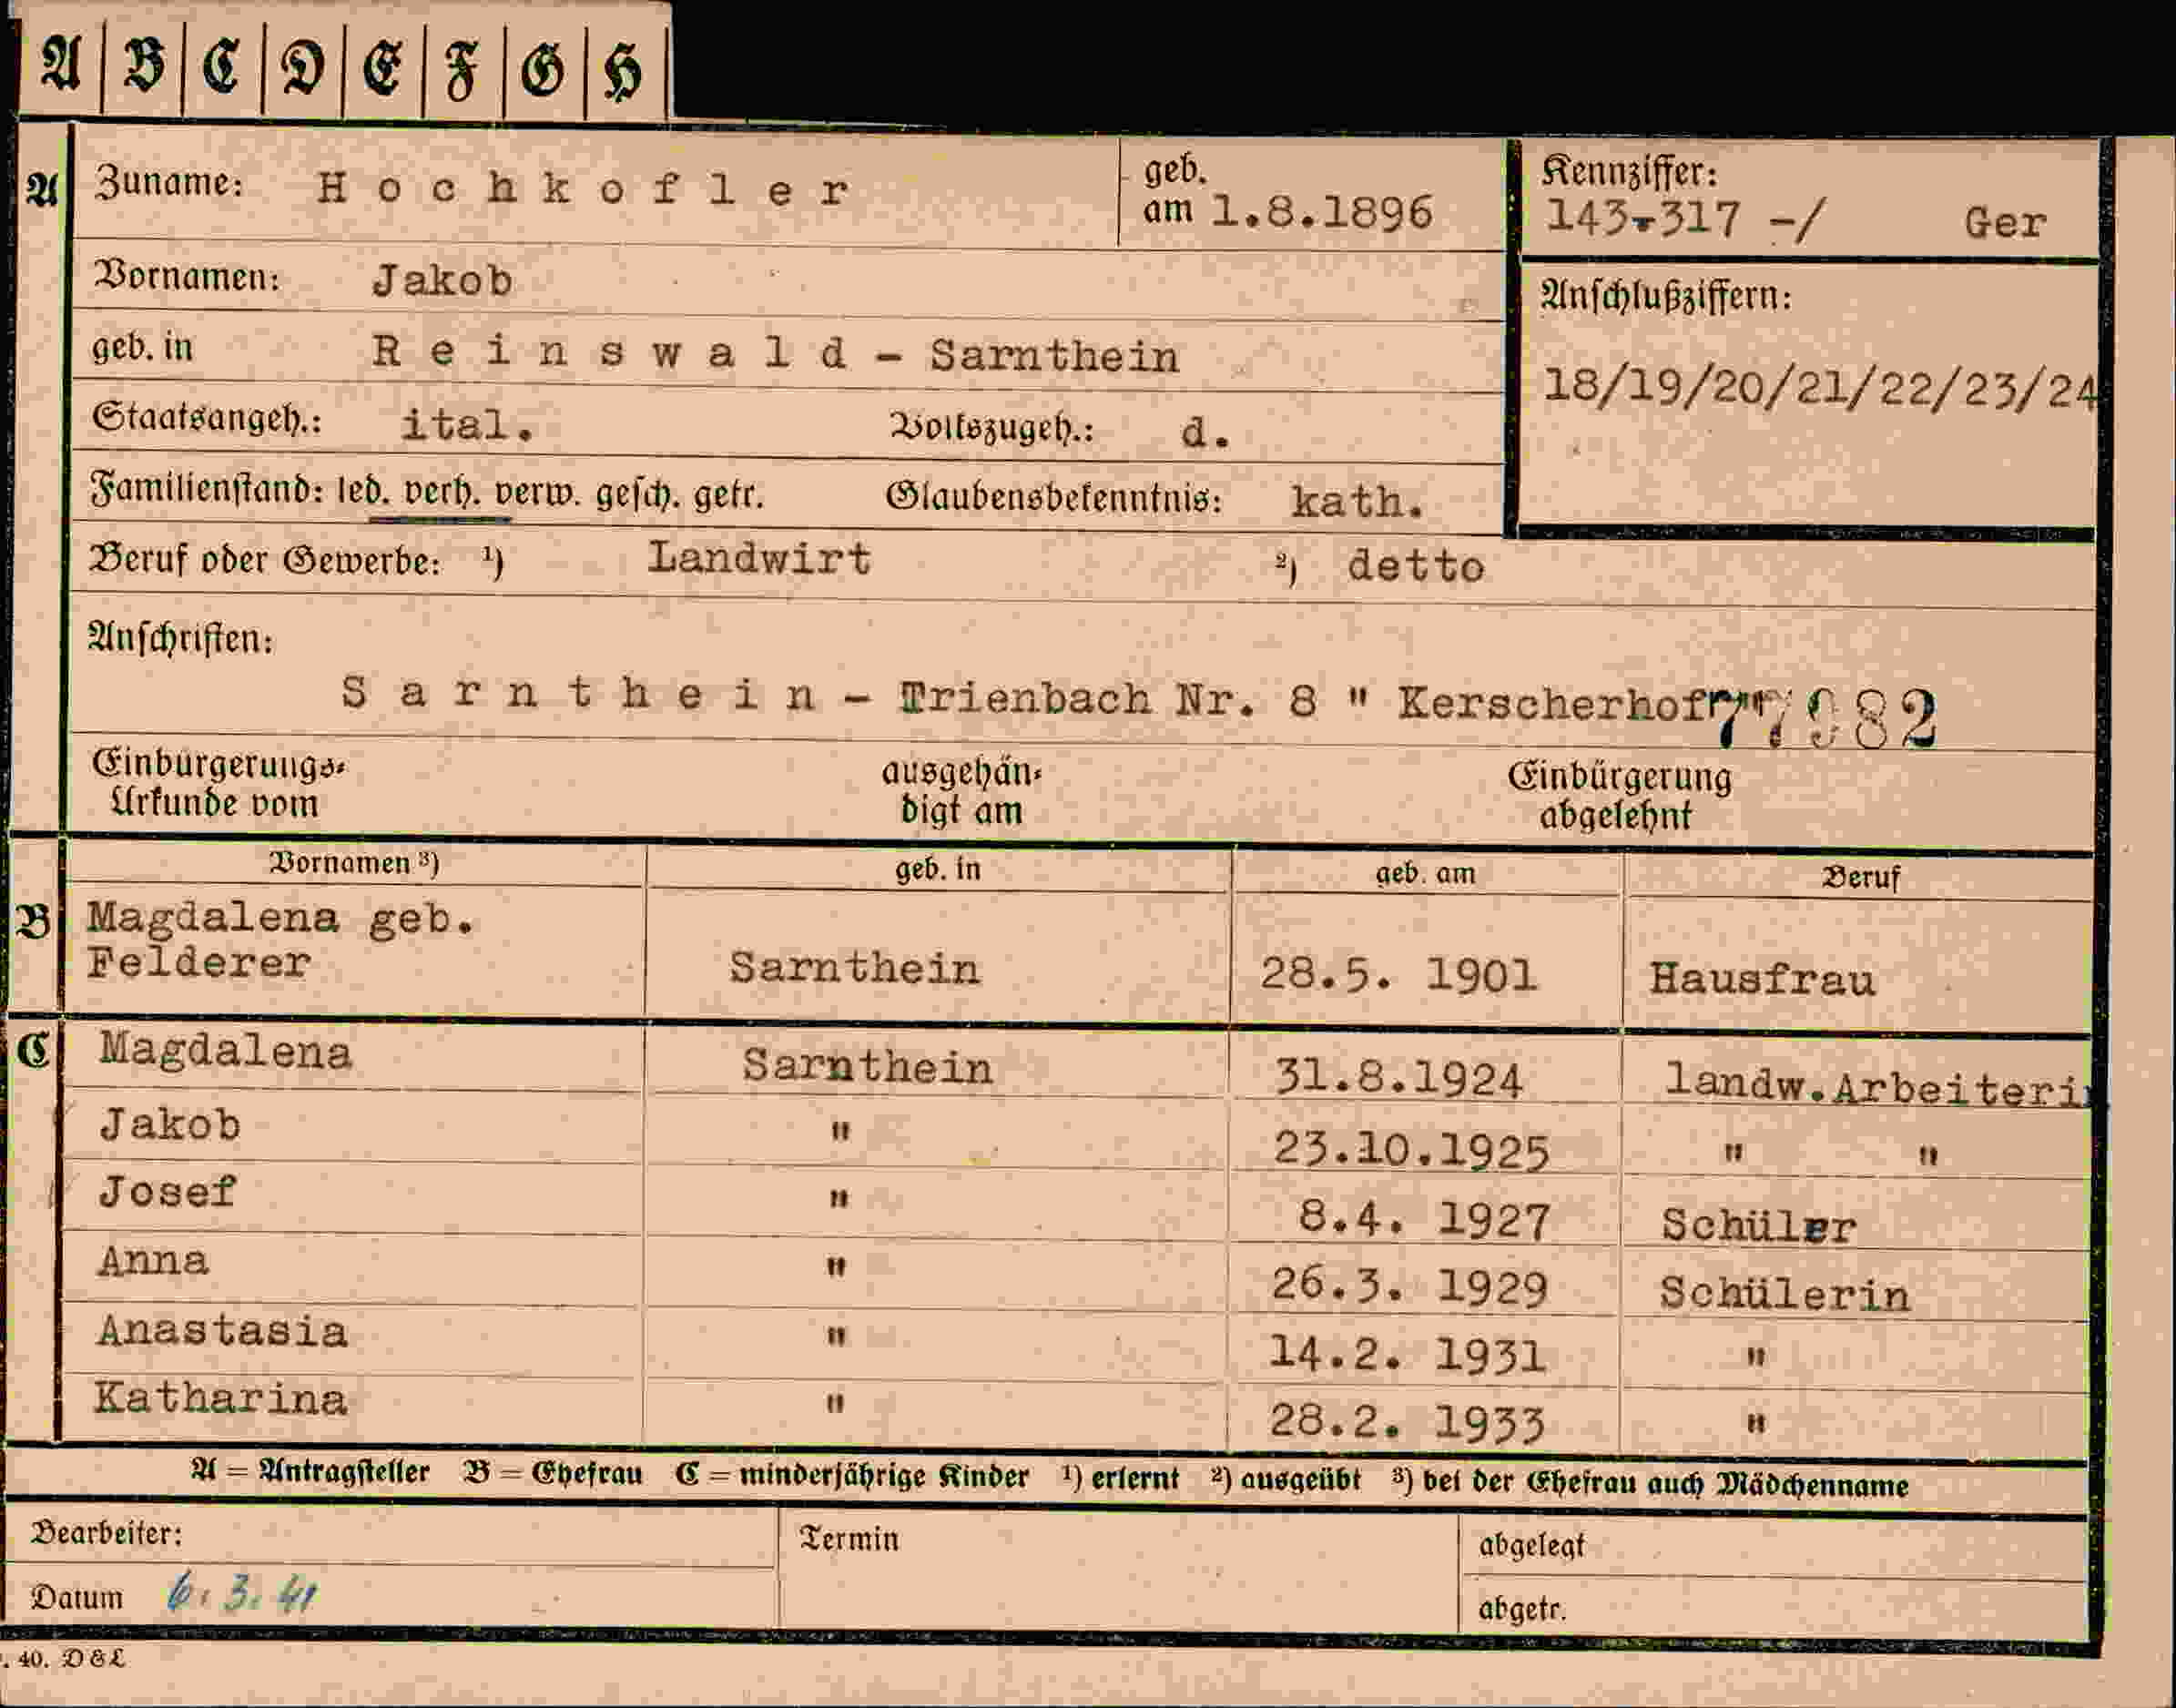 A B C D E F G H
A Zuname: Hochkofler geb. am 1.8.1896
Kennziffer:
143-317 -/ Ger
Vornamen: Jakob
Anschlußziffern:
18/19/20/21/22/23/24
geb. in Reinswald - Sarnthein
Staatsangeh.: ital. Volkszugeh.: d.
Familienstand: led. verh. verw. gesch. getr. Glaubensbekenntnis: kath.
Beruf oder Gewerbe: 1) Landwirt 2) detto
Anschriften:
Sarnthein - Trienbach Nr. 8 " Kerscherhof 77082
Einbürgerungs-
Urkunde vom
ausgehän-
digt am
Einbürgerung
abgelehnt
Vornamen 3) geb. in geb. am Beruf
B Magdalena geb.
Felderer Sarnthein 28.5. 1901 Hausfrau
C Magdalena Sarnthein 31.8.1924 landw.Arbeiterin
Jakob " 23.10.1925 " "
Josef " 8.4. 1927 Schüler
Anna " 26.3. 1929 Schülerin
Anastasia " 14.2. 1931 "
Katharina " 28.2. 1933 "
A = Antragsteller B = Ehefrau C = minderjährige Kinder 1) erlernt 2) ausgeübt 3) bei der Ehefrau auch Mädchenname
Bearbeiter: Termin abgelegt
Datum 6.3.41 abgetr.
. 40. D&L